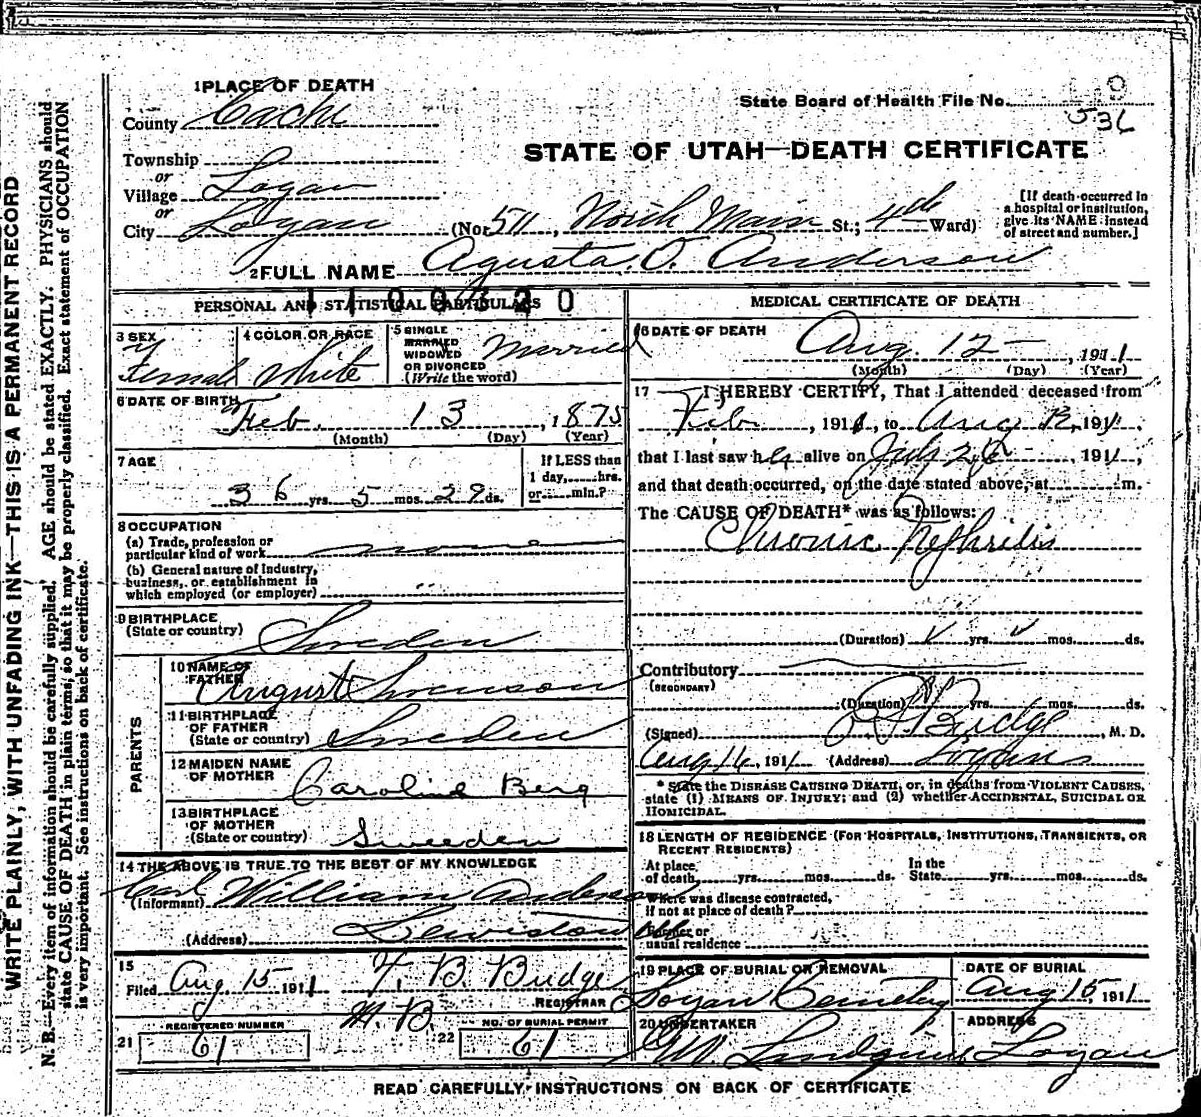 1 PLACE OF DEATH
County Cache
State Board of Health File No. 536
STATE OF UTAH—DEATH CERTIFICATE
Township
or
Village Logan
or
City Logan (No. 511, North Main St.; 4th Ward)
[If death occurred in a hospital or institution, give its NAME instead of street and number.]
2 FULL NAME Agusta O. Anderson
PERSONAL AND STATISTICAL PARTICULARS
3 SEX
Female
4 COLOR OR RACE
White
5 SINGLE
MARRIED
WIDOWED
OR DIVORCED
(Write the word)
Married
6 DATE OF BIRTH
Feb. 13, 1875
(Month) (Day) (Year)
7 AGE
36 yrs. 5 mos. 29 ds.
If LESS than
1 day, hrs.
or min.?
8 OCCUPATION
(a) Trade, profession or
particular kind of work none
(b) General nature of industry,
business, or establishment in
which employed (or employer) "
9 BIRTHPLACE
(State or country) Sweden
PARENTS
10 NAME OF
FATHER August Swenson
11 BIRTHPLACE
OF FATHER
(State or country) Sweden
12 MAIDEN NAME
OF MOTHER Caroline Berg
13 BIRTHPLACE
OF MOTHER
(State or country) Sweeden
14 THE ABOVE IS TRUE TO THE BEST OF MY KNOWLEDGE
(Informant) Carl William Anderson
(Address) Lewiston
15
Filed Aug 15 1911 F. B. Budge
REGISTRAR
M. B.
21 REGISTERED NUMBER
61
22 NO. OF BURIAL PERMIT
61
MEDICAL CERTIFICATE OF DEATH
16 DATE OF DEATH
Aug. 12, 1911
(Month) (Day) (Year)
17 I HEREBY CERTIFY, That I attended deceased from
Feb, 1911, to Aug 12, 1911,
that I last saw her alive on July 26, 1911,
and that death occurred, on the date stated above, at m.
The CAUSE OF DEATH* was as follows:
Chronic Nephritis
(Duration) yrs. mos. ds.
Contributory
(SECONDARY)
(Duration) yrs. mos. ds.
(Signed) Budge, M. D.
Aug 16, 1911 (Address) Logan
* State the DISEASE CAUSING DEATH, or, in deaths from VIOLENT CAUSES,
state (1) MEANS OF INJURY; and (2) whether ACCIDENTAL, SUICIDAL OR
HOMICIDAL.
18 LENGTH OF RESIDENCE (FOR HOSPITALS, INSTITUTIONS, TRANSIENTS, OR
RECENT RESIDENTS)
At place
of death yrs. mos. ds.
In the
State yrs. mos. ds.
Where was disease contracted,
if not at place of death?
Former or
usual residence
19 PLACE OF BURIAL OR REMOVAL
Logan Cemetery
DATE OF BURIAL
Aug 15, 1911
20 UNDERTAKER
Lindquist
ADDRESS
Logan
READ CAREFULLY INSTRUCTIONS ON BACK OF CERTIFICATE
WRITE PLAINLY, WITH UNFADING INK—THIS IS A PERMANENT RECORD
N. B.—Every item of information should be carefully supplied. AGE should be stated EXACTLY. PHYSICIANS should
state CAUSE OF DEATH in plain terms, so that it may be properly classified. Exact statement of OCCUPATION
is very important. See instructions on back of certificate.